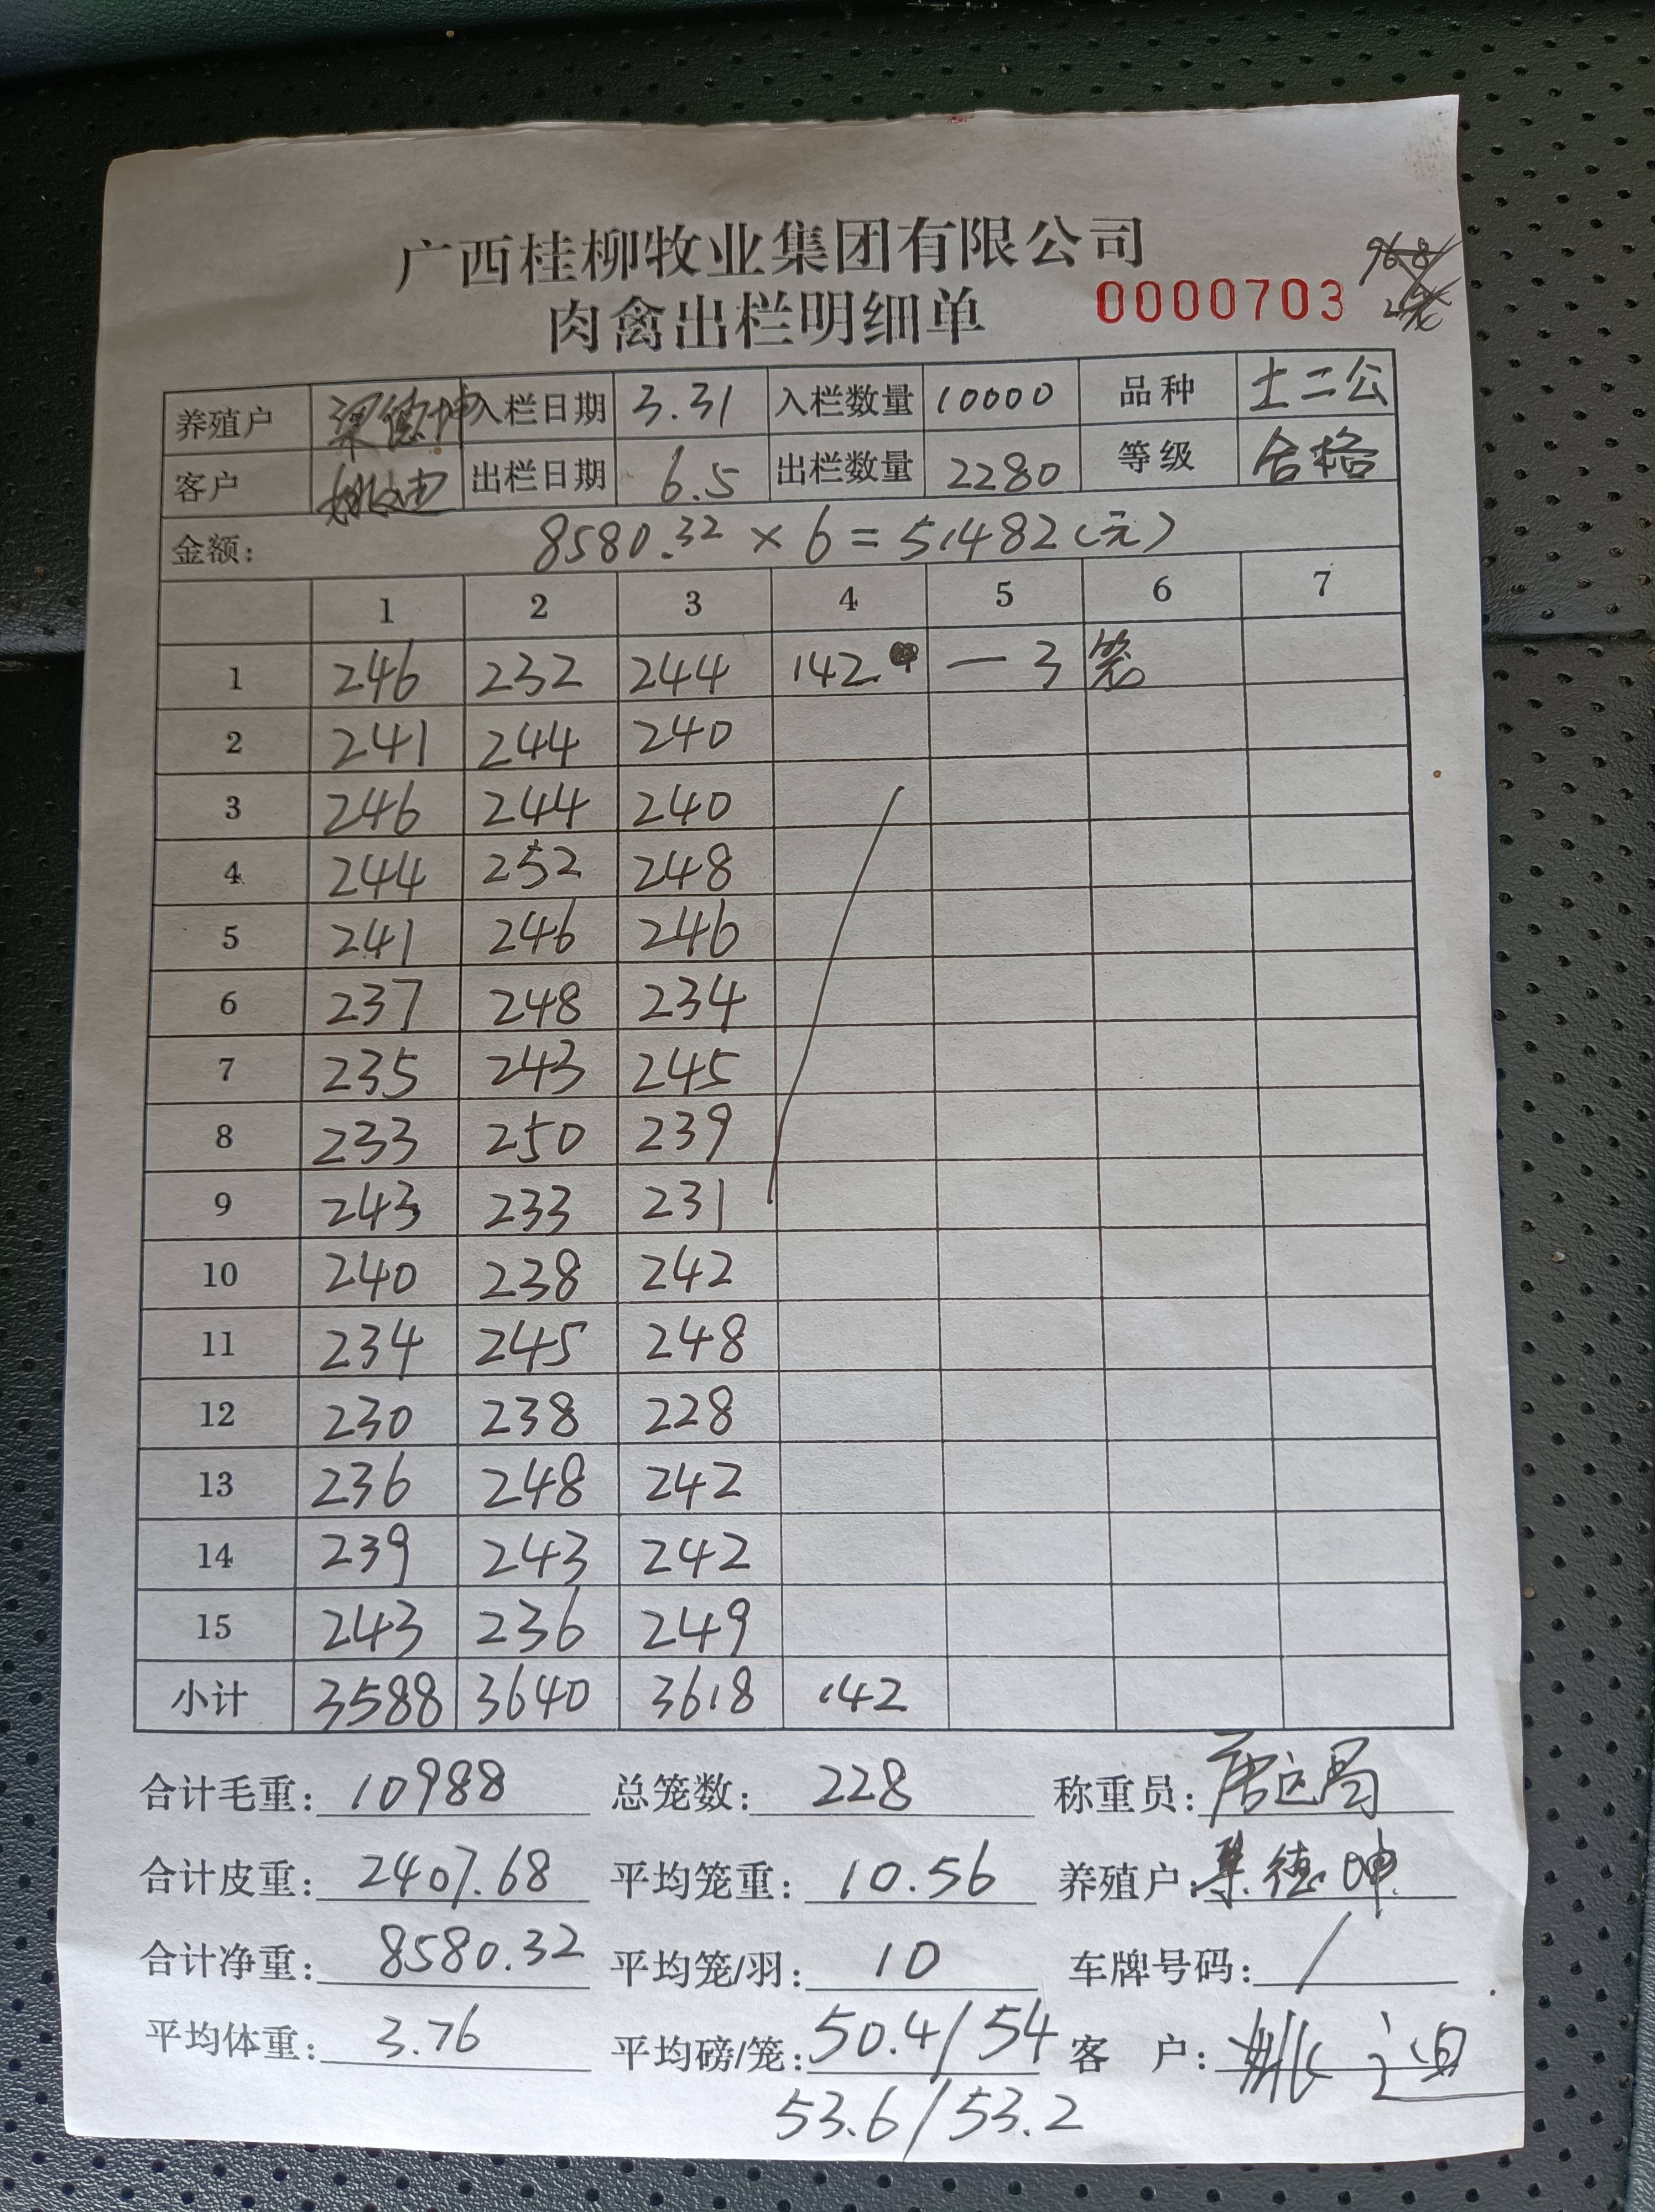 广西桂柳牧业集团有限公司
肉禽出栏明细单 0000703
养殖户 梁德坤 入栏日期 3.31 入栏数量 10000 品种 土二公
客户 出栏日期 6.5 出栏数量 2280 等级 合格
金额: 8580.32 × 6 = 51482(元)
1 2 3 4 5 6 7
1 246 232 244 142 — 3 笼
2 241 244 240
3 246 244 240
4 244 252 248
5 241 246 246
6 237 248 234
7 235 243 245
8 233 250 239
9 243 233 231
10 240 238 242
11 234 245 248
12 230 238 228
13 236 248 242
14 239 243 242
15 243 236 249
小计 3588 3640 3618 142
合计毛重: 10988 总笼数: 228 称重员:
合计皮重: 2407.68 平均笼重: 10.56 养殖户: 梁德坤
合计净重: 8580.32 平均笼/羽: 10 车牌号码: /
平均体重: 3.76 平均磅/笼: 50.4/54 客 户:
53.6/53.2